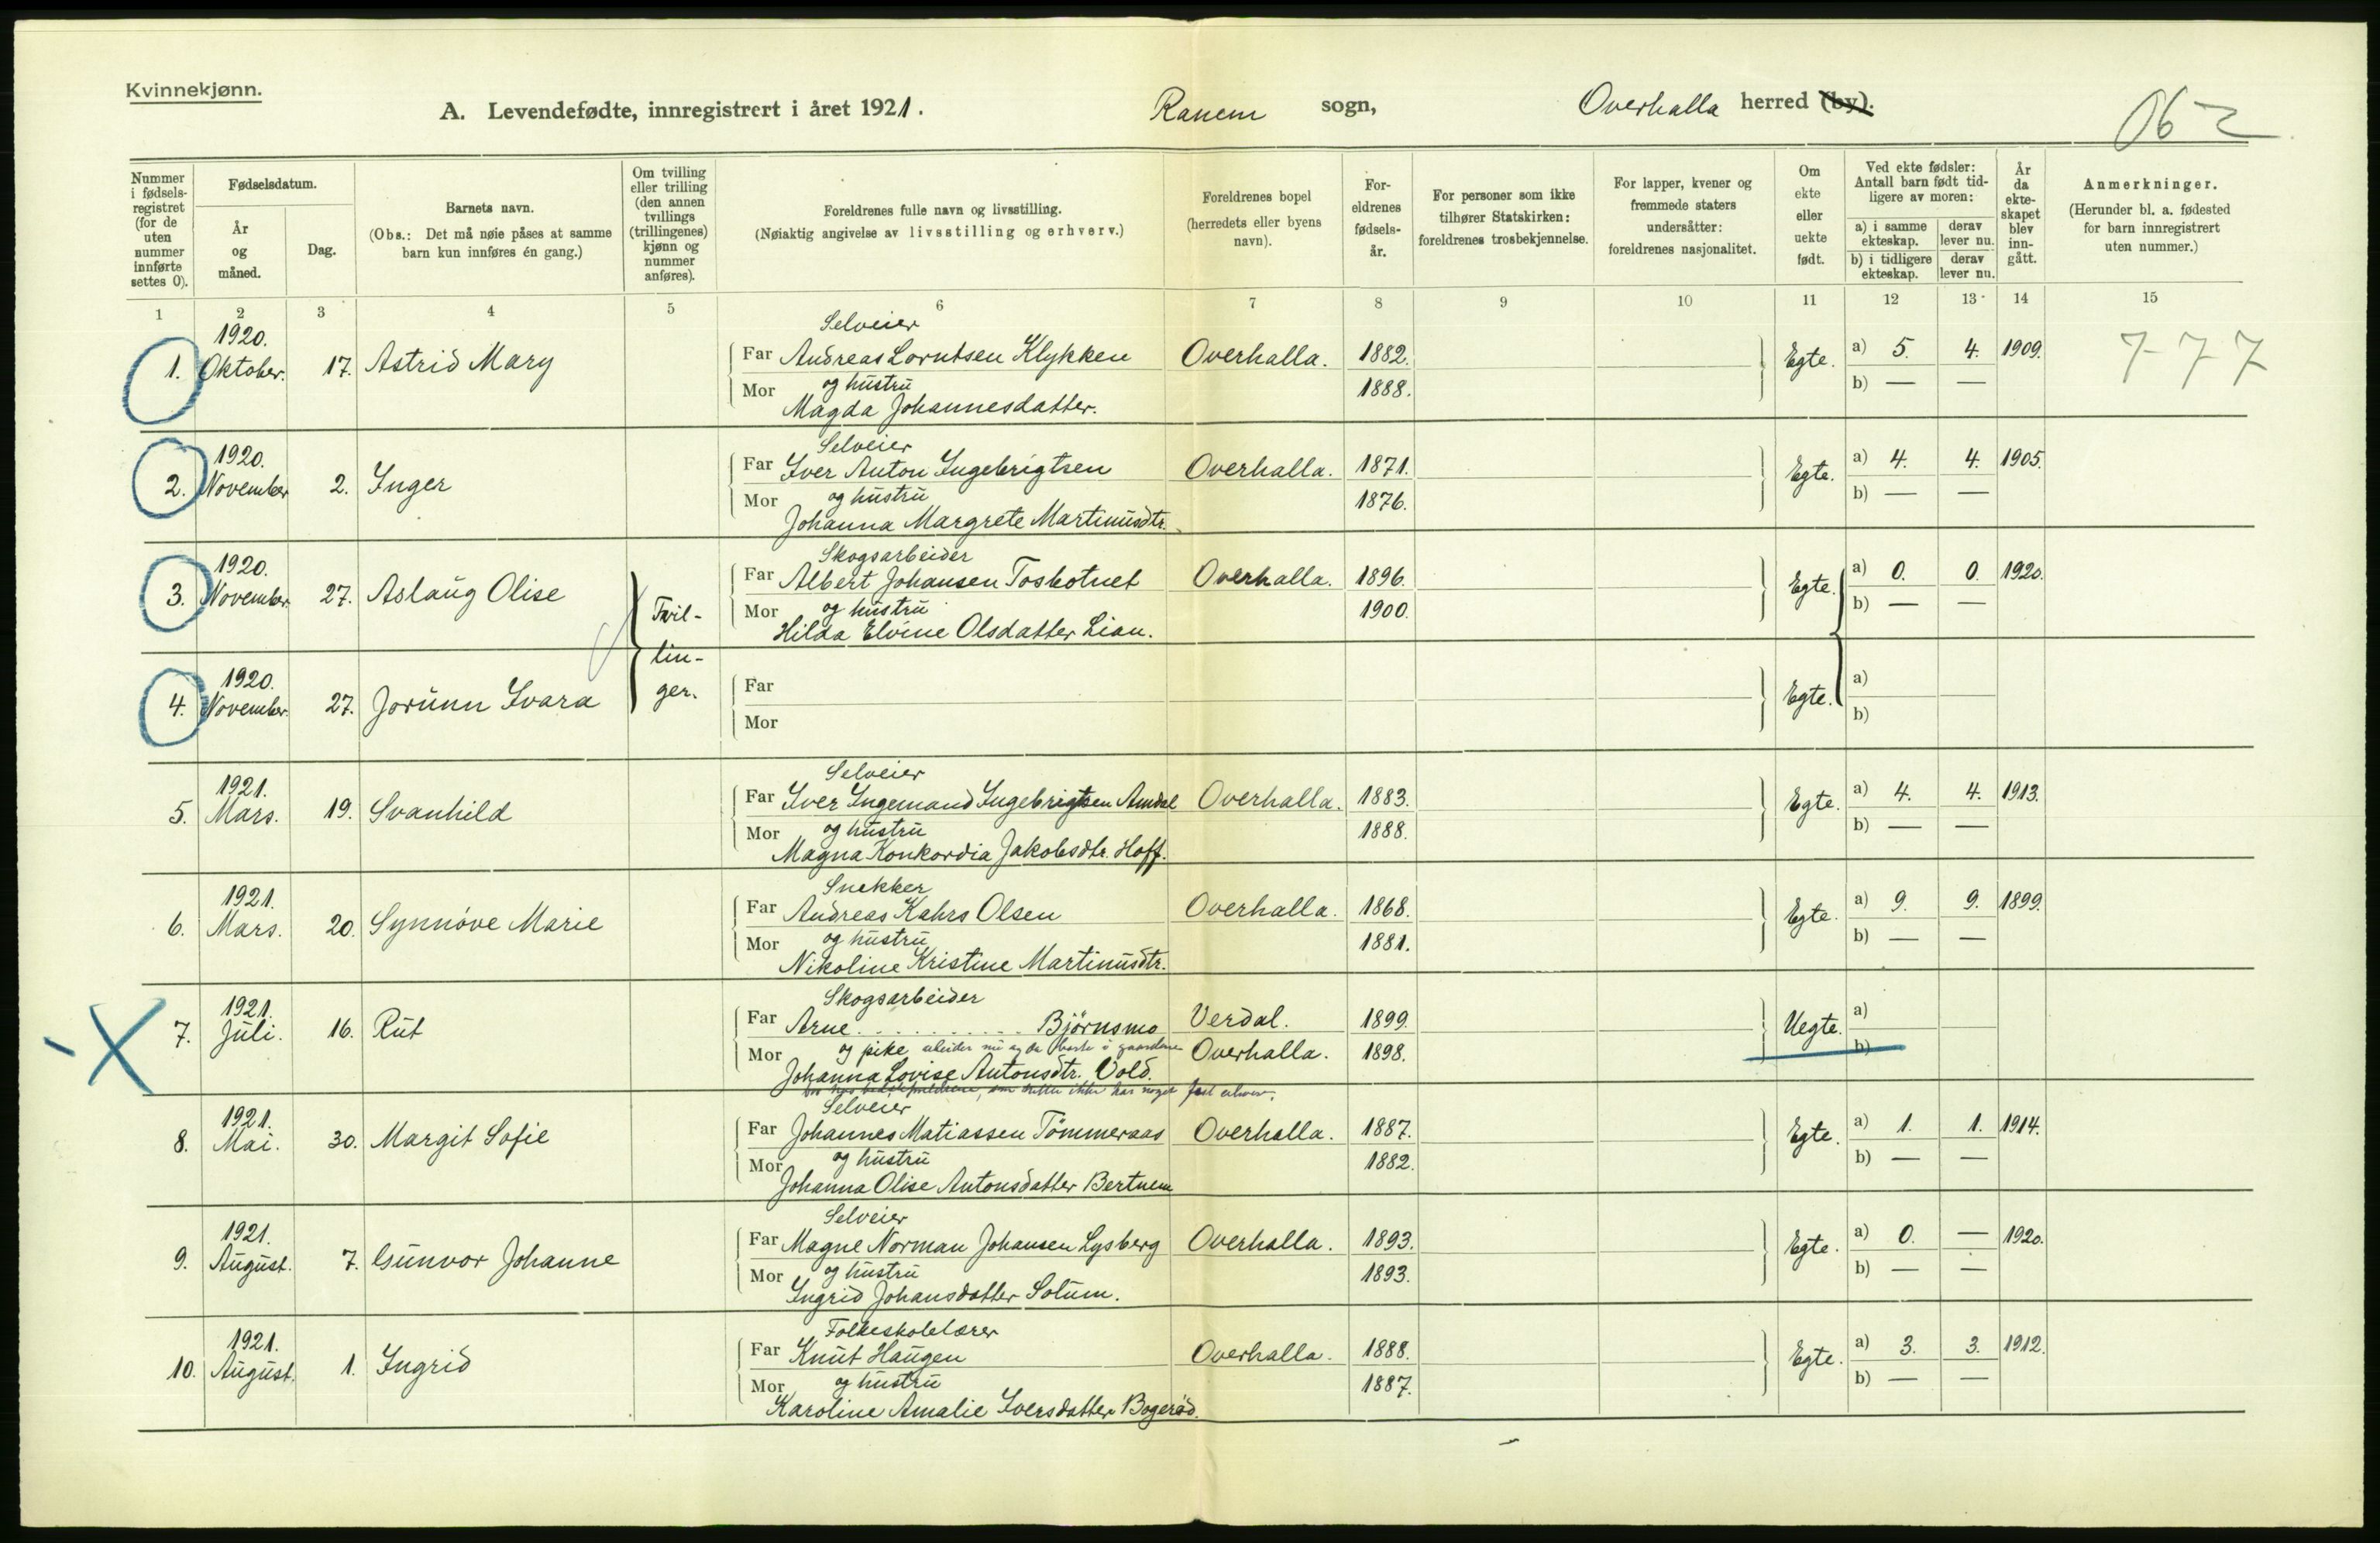 Kvinnekjønn.
A. Levendefødte, innregistrert i året 1921. Ranem sogn, Overhalla herred (by).
062
Nummer i fødselsregistret (for de uten nummer innførte settes 0).
Fødselsdatum.
År og måned.
Dag.
Barnets navn.
(Obs.: Det må nøie påses at samme barn kun innføres én gang.)
Om tvilling eller trilling (den annen tvillings (trillingenes) kjønn og nummer anføres).
Foreldrenes fulle navn og livsstilling.
(Nøiaktig angivelse av livsstilling og erhverv.)
Foreldrenes bopel
(herredets eller byens navn).
Foreldrenes fødselsår.
For personer som ikke tilhører Statskirken: foreldrenes trosbekjennelse.
For lapper, kvener og fremmede staters undersåtter: foreldrenes nasjonalitet.
Om ekte eller uekte født.
Ved ekte fødsler: Antall barn født tidligere av moren:
a) i samme ekteskap. derav lever nu.
b) i tidligere ekteskap. derav lever nu.
År da ekteskapet blev inngått.
Anmerkninger.
(Herunder bl. a. fødested for barn innregistrert uten nummer.)
1 2 3 4 5 6 7 8 9 10 11 12 13 14 15
1920. Selveier
1. Oktober. 17. Astrid Mary Far Andreas Lorntsen Klykken Overhalla. 1882. Egte. a) 5. 4. 1909. 7 - 7 7
Mor og hustru 1888. b) — —
Magda Johannesdatter.
1920. Selveier
2. November 2. Inger Far Iver Anton Ingebrigtsen Overhalla. 1871. Egte. a) 4. 4. 1905.
Mor og hustru 1876. b) — —
Johanna Margrete Martinusdtr.
1920. Skogsarbeider
3. November. 27. Aslaug Olise Tvil- Far Albert Johansen Tosbotnet Overhalla. 1896. Egte. a) 0. 0. 1920.
Mor og hustru 1900. b) — —
Hilda Elvine Olsdatter Lian.
1920. lin-
4. November. 27. Jorunn Svara ger. Far Egte. a)
Mor b)
1921. Selveier
5. Mars. 19. Svanhild Far Iver Ingemand Ingebrigtsen Amdal Overhalla. 1883. Egte. a) 4. 4. 1913.
Mor og hustru 1888. b) — —
Magna Konkordia Jakobsdtr. Hoff.
1921. Snekker
6. Mars. 20. Synnöve Marie Far Andreas Kahrs Olsen Overhalla. 1868. Egte. a) 9. 9. 1899.
Mor og hustru 1881. b) — —
Nikoline Kristine Martinusdtr.
1921. Skogsarbeider
7. Juli. 16. Rut Far Arne . . . . . . . . . . Björnsmo Verdal. 1899. Uegte. a)
Mor og pike arbeider nu og da borte i gaardene Overhalla. 1898. b)
Johanna Lovise Antonsdtr. Vold.
som dette ikke har noget fast erhverv.
1921. Selveier
8. Mai. 30. Margit Sofie Far Johannes Matiassen Tömmeraas Overhalla. 1887. Egte. a) 1. 1. 1914.
Mor og hustru 1882. b) — —
Johanna Olise Antonsdatter Bertnem
1921. Selveier
9. August. 7. Gunvor Johanne Far Magne Norman Johansen Lysberg Overhalla. 1893. Egte. a) 0. — 1920.
Mor og hustru 1893. b) — —
Ingrid Johansdatter Solum.
1921. Folkeskolelærer
10. August. 1. Ingrid Far Knut Haugen Overhalla. 1888. Egte. a) 3. 3. 1912.
Mor og hustru 1887. b) — —
Karoline Amalie Iversdatter Bogeröd.